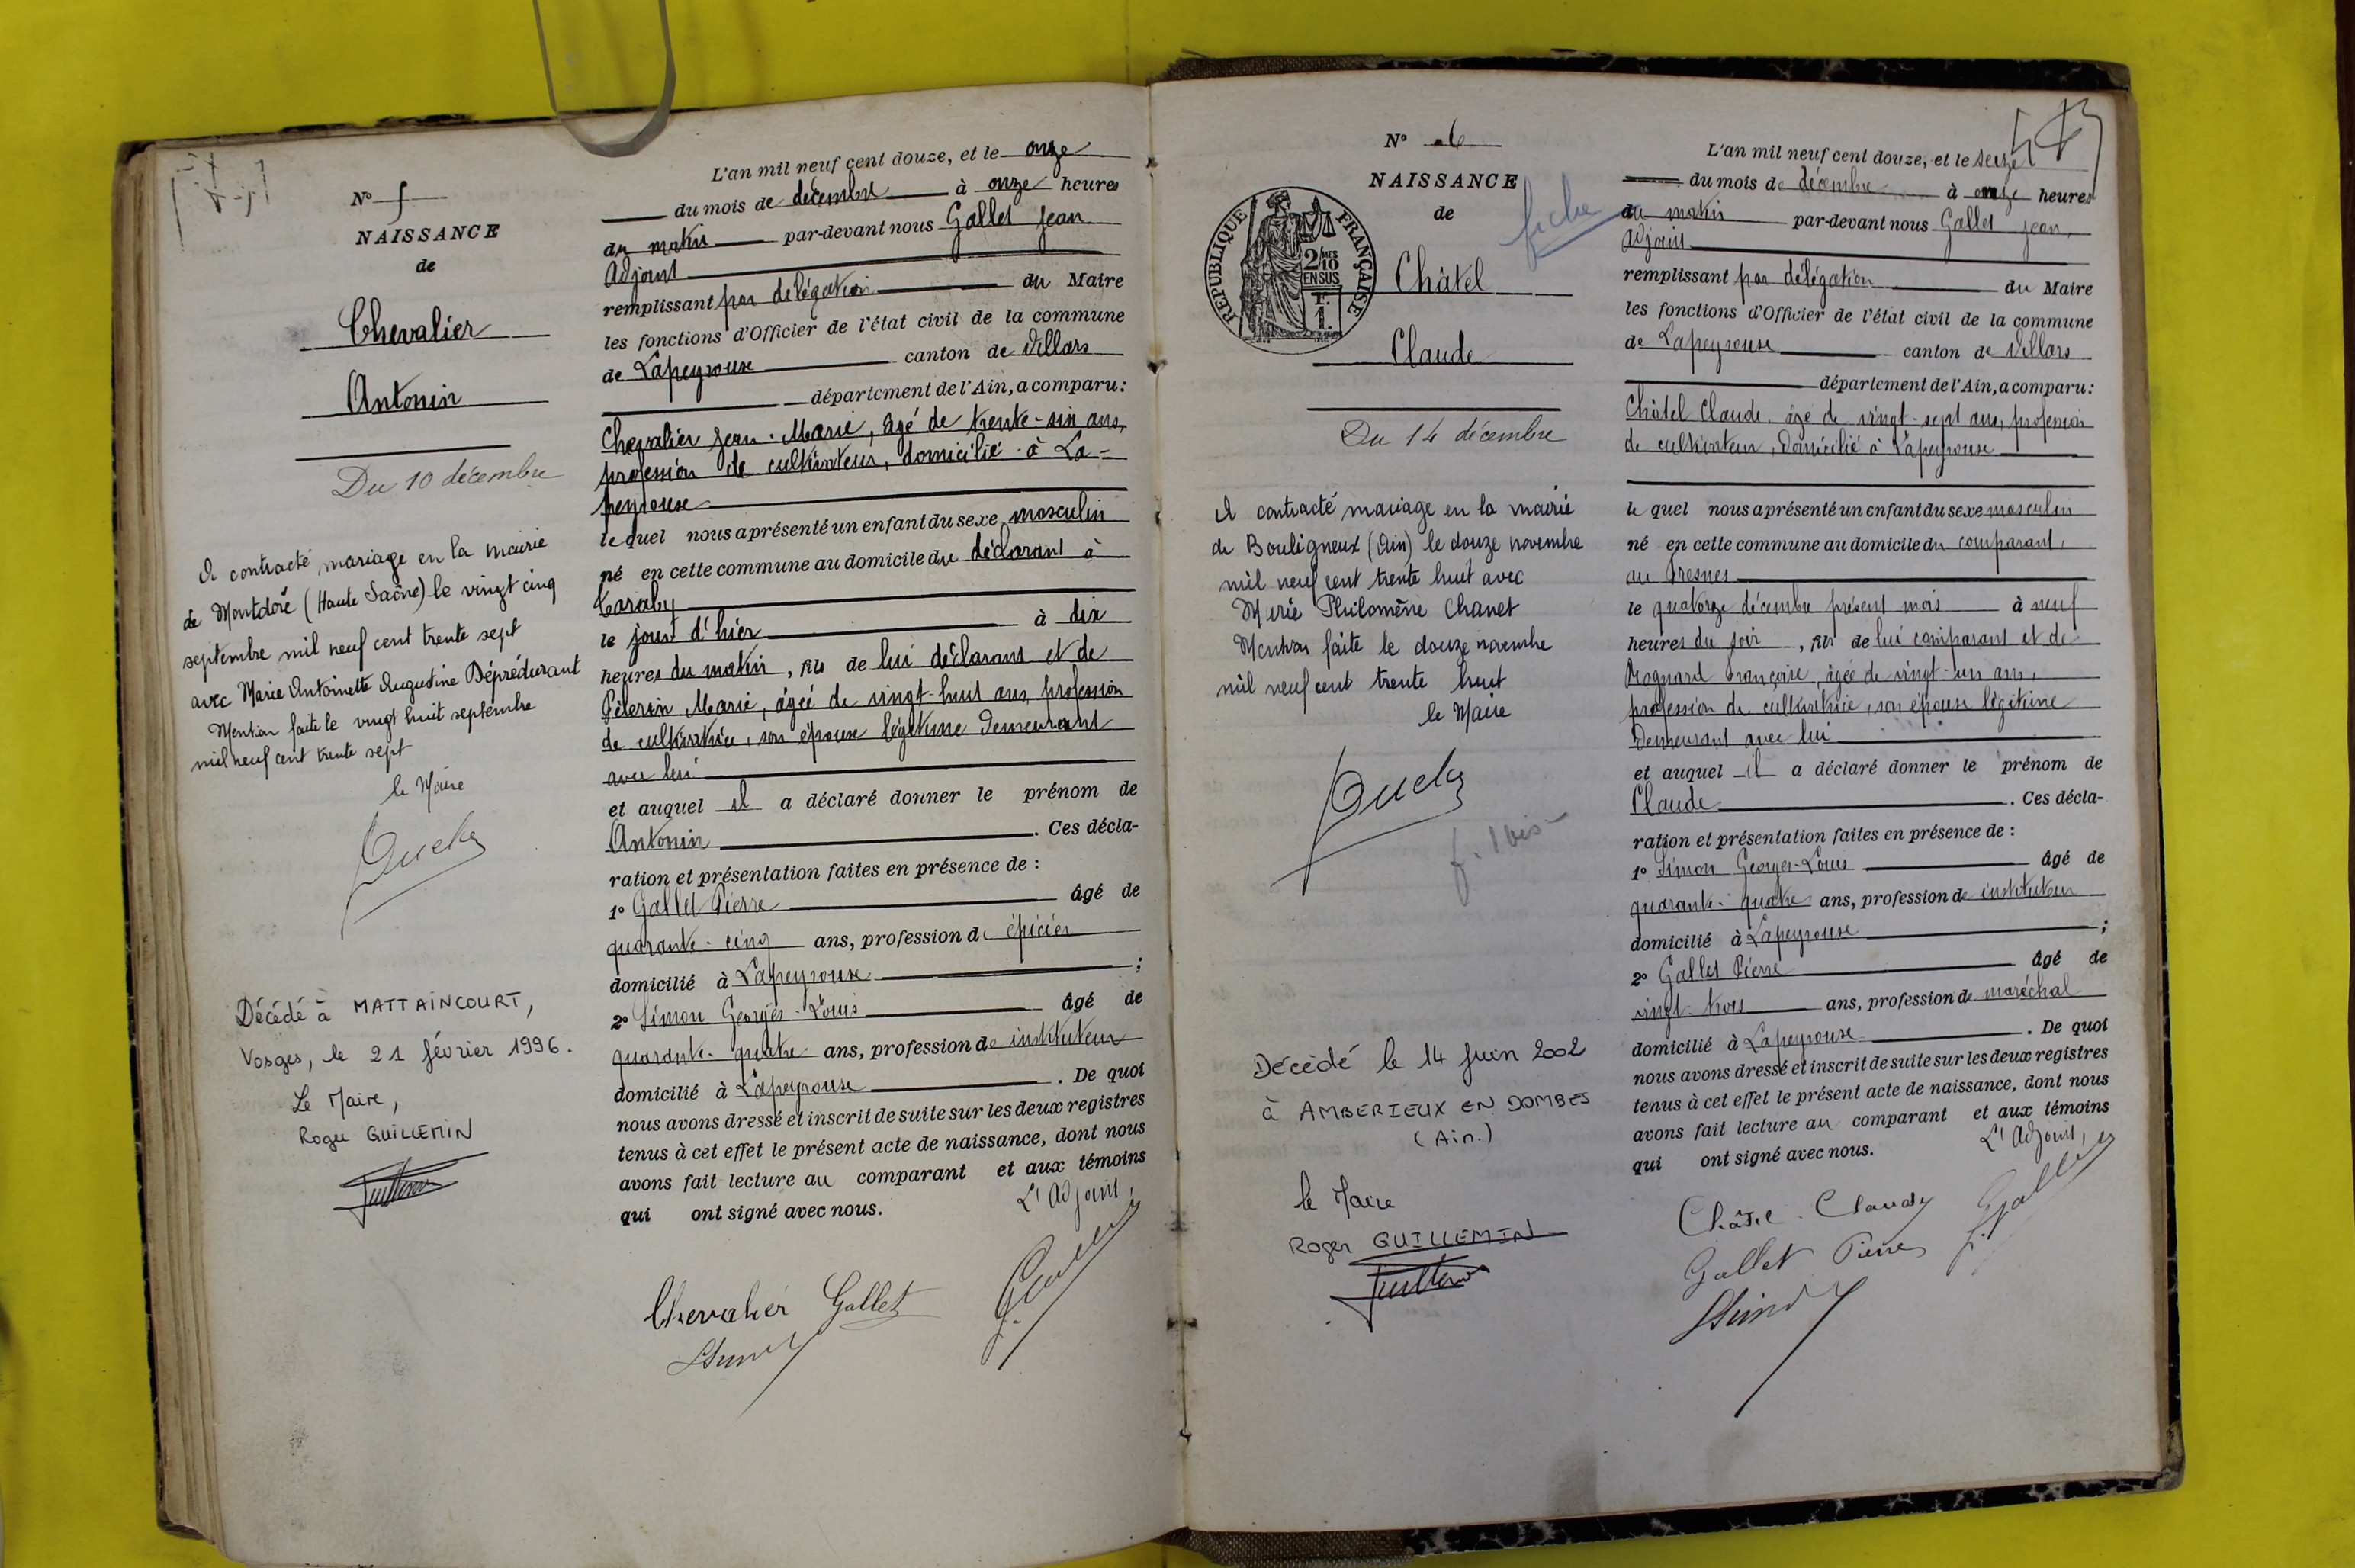 N° 5
NAISSANCE
de
Chevalier
Antonin
Du 10 décembre
Il contracté mariage en la mairie
de Montdoré (Haute Saône) le vingt cinq
septembre mil neuf cent trente sept
avec Marie Antoinette Augustine Dépréderant
Mention faite le vingt huit septembre
mil neuf cent trente sept
le Maire
Décédé à MATTAINCOURT,
Vosges, le 21 février 1996.
Le Maire,
Roger GUILLEMIN
L'an mil neuf cent douze, et le onze
du mois de décembre à onze heures
du matin par-devant nous Gallet Jean
Adjoint
remplissant par délégation du Maire
les fonctions d'Officier de l'état civil de la commune
de Lapeyrouse canton de Villars
département de l'Ain, a comparu :
Chevalier Jean-Marie, âgé de trente-six ans,
profession de cultivateur, domicilié à La=
peyrouse
le quel nous a présenté un enfant du sexe masculin
né en cette commune au domicile du déclarant à
le jour d'hier à dix
heures du matin, fils de lui déclarant et de
Pélerin Marie, âgée de vingt-huit ans, profession
de cultivatrice, son épouse légitime demeurant
avec lui
et auquel il a déclaré donner le prénom de
Antonin . Ces décla-
ration et présentation faites en présence de :
1° Gallet Pierre âgé de
quarante-cinq ans, profession de épicier
domicilié à Lapeyrouse ;
2° Simon Georges-Louis âgé de
quarante-quatre ans, profession de instituteur
domicilié à Lapeyrouse . De quoi
nous avons dressé et inscrit de suite sur les deux registres
tenus à cet effet le présent acte de naissance, dont nous
avons fait lecture au comparant et aux témoins
qui ont signé avec nous.
L'Adjoint,
Chevalier Gallet
N° 6
NAISSANCE
de
fiche
RÉPUBLIQUE FRANÇAISE
2/10
EN SUS
Châtel
Claude
Du 14 décembre
Il contracté mariage en la mairie
de Bouligneux (Ain) le douze novembre
mil neuf cent trente huit avec
Marie Philomène Chanet
Mention faite le douze novembre
mil neuf cent trente huit
le Maire
Décédé le 14 Juin 2002
à AMBERIEUX EN DOMBES
(Ain.)
le Maire
Roger GUILLEMIN
L'an mil neuf cent douze, et le seize
du mois de décembre à onze heures
du matin par-devant nous Gallet Jean,
Adjoint
remplissant par délégation du Maire
les fonctions d'Officier de l'état civil de la commune
de Lapeyrouse canton de Villars
département de l'Ain, a comparu :
Châtel Claude, âgé de vingt-sept ans, profession
de cultivateur, domicilié à Lapeyrouse
le quel nous a présenté un enfant du sexe masculin
né en cette commune au domicile du comparant,
au Fresnes
le quatorze décembre présent mois à neuf
heures du soir, fils de lui comparant et de
Françoise, âgée de vingt-un ans,
profession de cultivatrice, son épouse légitime
demeurant avec lui
et auquel il a déclaré donner le prénom de
Claude . Ces décla-
ration et présentation faites en présence de :
1° Simon Georges-Louis âgé de
quarante-quatre ans, profession de instituteur
domicilié à Lapeyrouse ;
2° Gallet Pierre âgé de
vingt-trois ans, profession de maréchal
domicilié à Lapeyrouse . De quoi
nous avons dressé et inscrit de suite sur les deux registres
tenus à cet effet le présent acte de naissance, dont nous
avons fait lecture au comparant et aux témoins
qui ont signé avec nous.
L'Adjoint,
Châtel Claude
Gallet Pierre